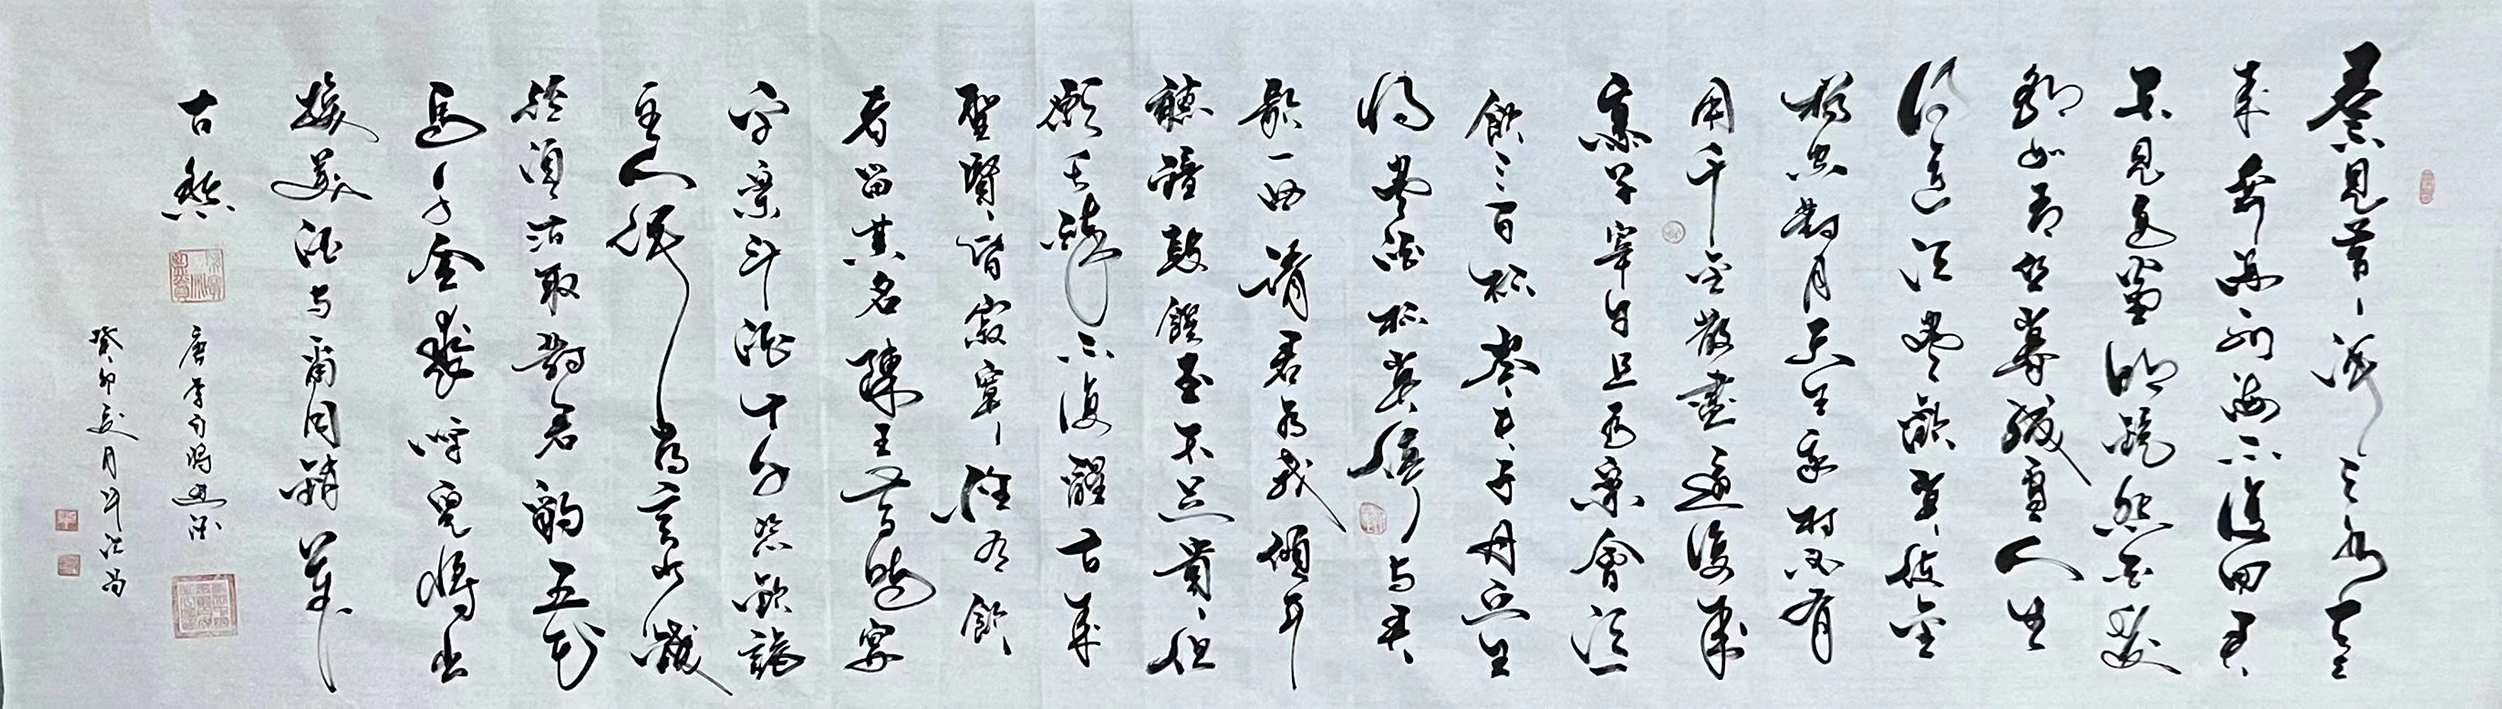 君不見黃河之水天上
來奔流到海不復回君
不見高堂明鏡悲白髮
朝如青絲暮成雪人生
得意須盡歡莫使金
樽空對月天生我材必有
用千金散盡還復來
烹羊宰牛且為樂會須一
飲三百杯岑夫子丹丘生
將進酒杯莫停與君
歌一曲請君為我傾耳
聽鐘鼓饌玉不足貴但
願長醉不復醒古來
聖賢皆寂寞惟有飲
者留其名陳王昔時宴
平樂斗酒十千恣歡謔
主人何為言少錢
徑須沽取對君酌五花
馬千金裘呼兒將出
換美酒與爾同銷萬
古愁
唐李白將進酒
癸卯夏月